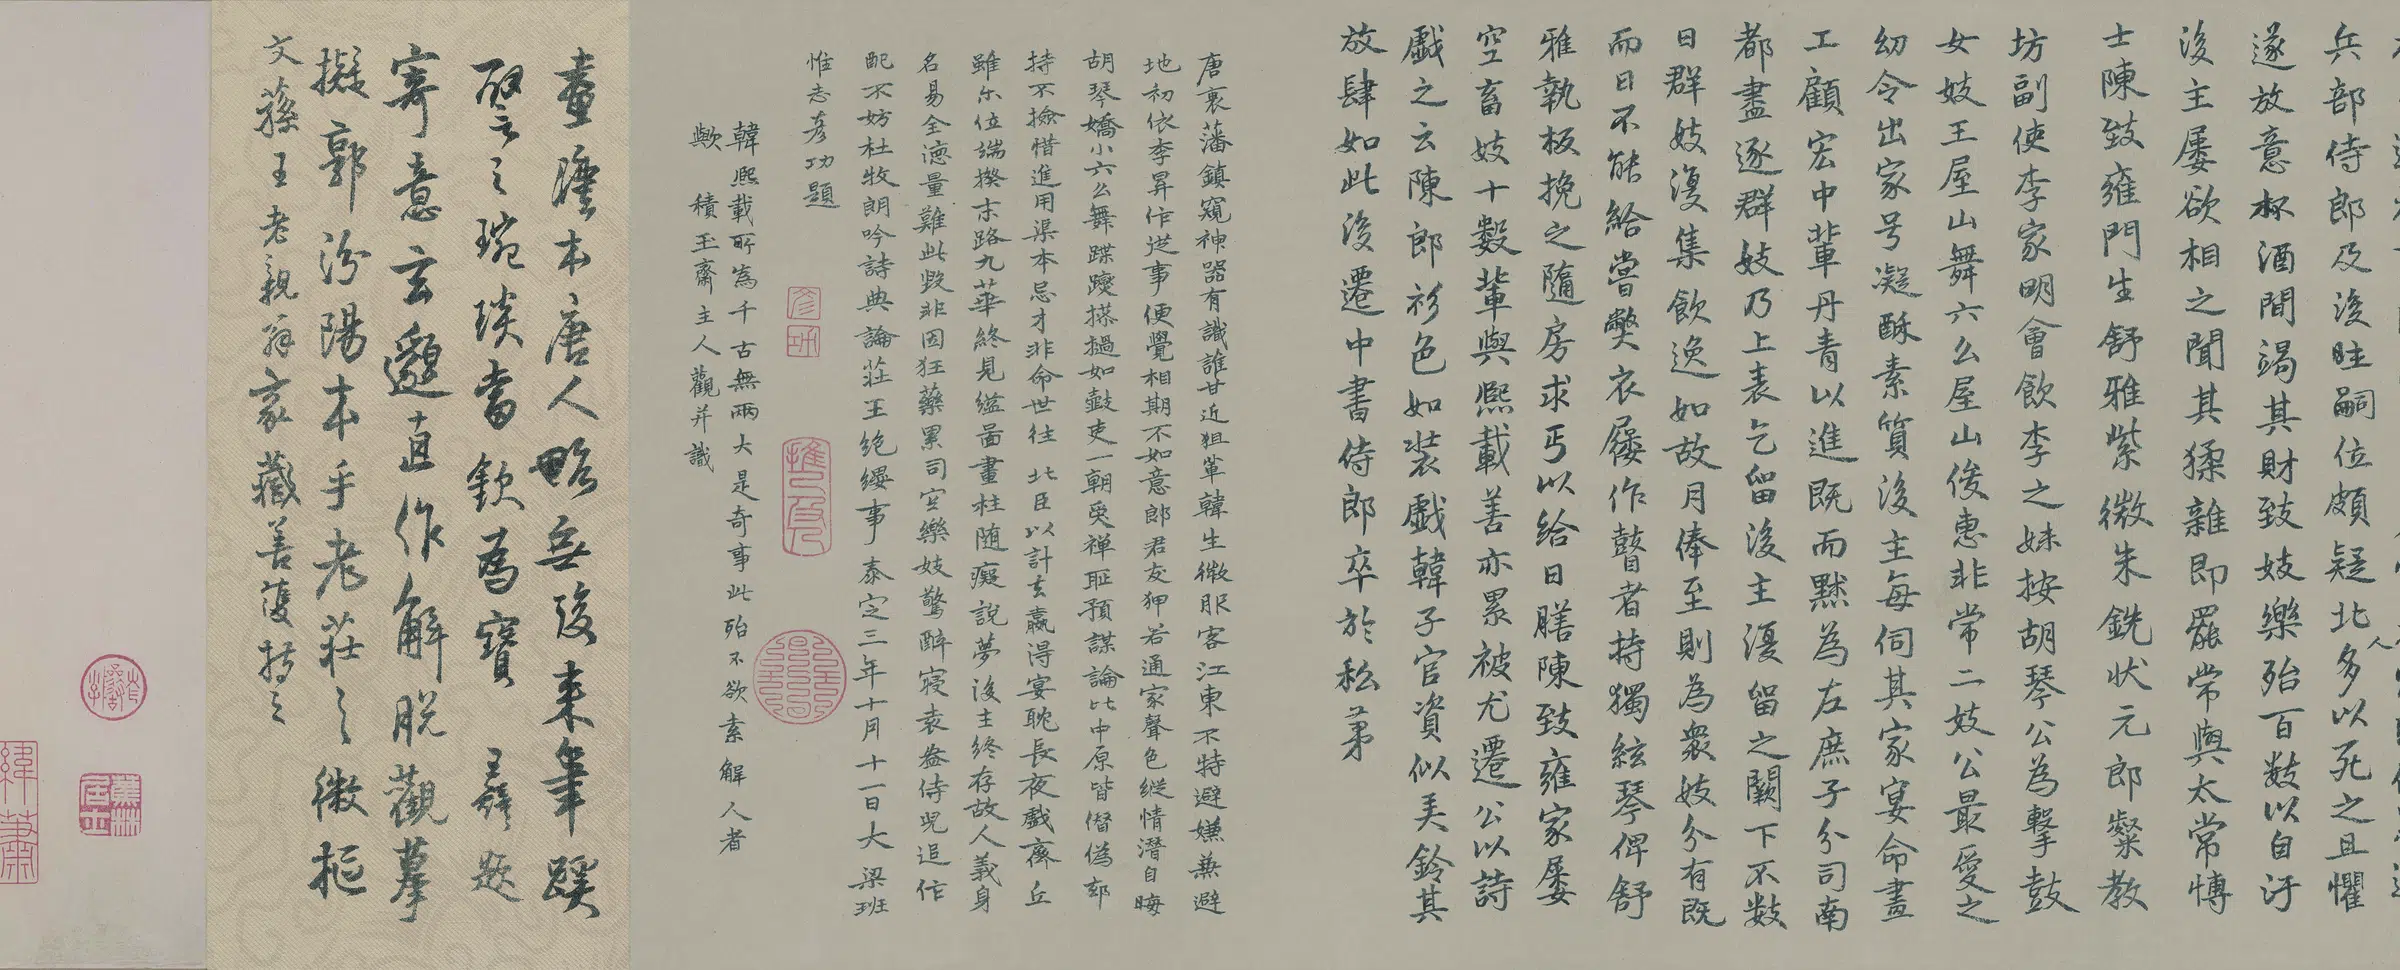 兵部侍郎及後主嗣位頗疑北人多以死之且懼
遂放意杯酒間竭其財致妓樂殆百數以自汙
後主屢欲相之聞其猱雜即罷常與太常博
士陳致雍門生舒雅紫微朱銑狀元郎粲教
坊副使李家明會飲李之妹按胡琴公為擊鼓
女妓王屋山舞六么屋山俊惠非常二妓公最愛之
幼令出家号凝酥素質後主每伺其家宴命畫
工顧宏中輩丹青以進既而黙為左庶子分司南
都盡逐群妓乃上表乞留後主復留之闕下不数
日群妓復集飲逸如故月俸至則為衆妓分有既
而日不能給嘗獘衣屨作瞽者持獨絃琴俾舒
雅執板挽之隨房求丐以給日膳陳致雍家屢
空畜妓十數輩與熙載善亦累被尤遷公以詩
戲之云陳郎衫色如裝戲韓子官資似美鈴其
放肆如此後遷中書侍郎卒於私第
唐衰藩鎮窺神器有識誰甘近狙輩韓生微服客江東不特避嫌兼避
地初依李昇作逆事便覺相期不如意郎君友狎若通家聲色縱情潛自晦
胡琴嬌小六么舞蹀躞摻撾如鼓吏一朝受禪恥預謀論比中原皆僭偽郤
持不撿惜進用渠本忌才非命世往北臣以計去贏得宴耽長夜戲齊丘
雖尔位端揆末路九華終見縊圖畫枉随癡說夢後主終存故人義身
名易全德量難此毀非因狂藥累司空樂妓驚醉寢袁盎侍兒追作
配不妨杜牧朗吟詩典論莊王绝纓事泰定三年十月十一日大梁班
惟志彥功題
彥功
韓熙載所為千古無兩大是奇事此殆不欲素解人者
歟 積玉齋主人觀并識
畫腫本唐人略無後来筆蹊
譬之琬琰當欽為寶 題
寄意玄邈直作解脱觀摹
擬郭汾陽本乎老莊之微柜
文蓀王老親翁家藏善護持之
蕉林
居士